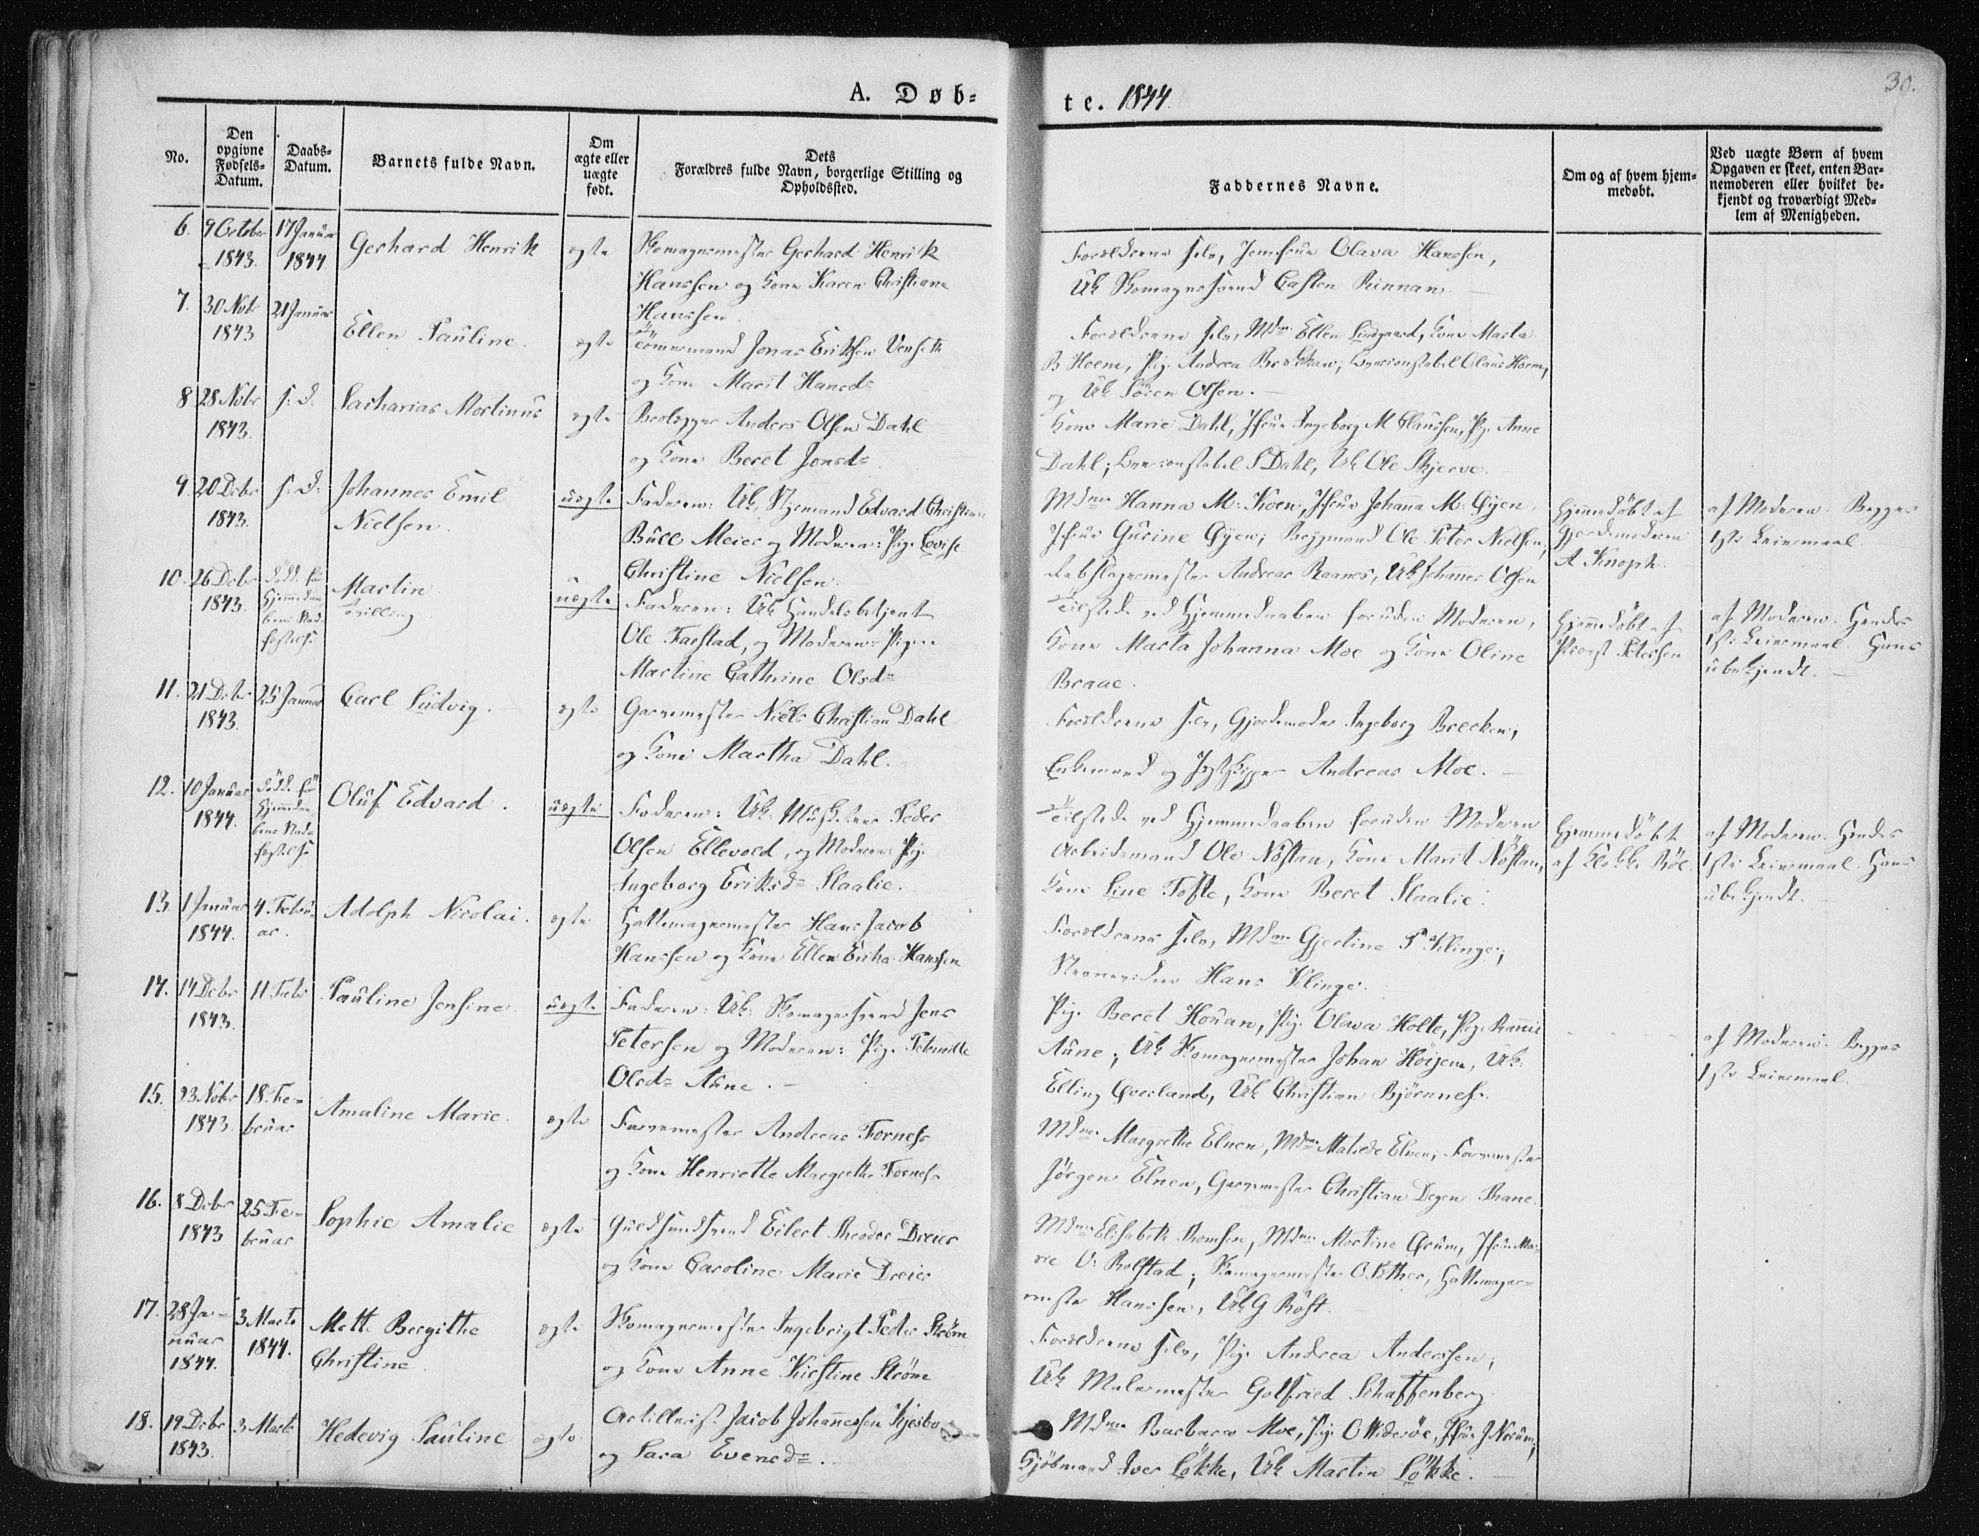 A. Døb=
te. 1844.
30.
No.
Den opgivne Fødsels-Datum.
Daabs-Datum.
Barnets fulde Navn.
Om ægte eller uægte født.
Dets Forældres fulde Navn, borgerlige Stilling og Opholdssted.
Faddernes Navne.
Om og af hvem hjemmedøbt.
Ved uægte Børn af hvem Opgaven er skeet, enten Barnemoderen eller hvilket bekjendt og troværdigt Medlem af Menigheden.
6. 9 October 1843. 17 Januar 1844. Gerhard Henrik ægte
Skomagermester Gerhard Henrik
Hanssen og Kone Karen Christiane
Hanssen
Forældrene selv, Jomfrue Olava Hanssen,
Uk Skomagersvend Casten Rinnan.
7. 30 Novbr 1843 21 Januar Ellen Pauline. ægte
Tømmermand Jonas Eriksen
og Kone Marit Hansd=
Forældrene selv, Mdm Ellen Lindgaard, Kone Marta
B Hoem, Pig. Andrea, Olaus Hoem,
og Uk Sören Olsen.
8. 28 Novbr 1843. s: d. Zacharias Martinus ægte
Anders Olsen Dahl
og Kone Beret Jonsd=
Kone Marie Dahl, Jfrue Ingeborg M Clausen, Pig. Anne
Dahl, S Dahl, Uk Ole Skjerve.
9. 20 Decbr 1843. s: d. Johannes Emil Nielsen. uægte
Faderen: Uk, Styrmand Edvard Christian
Büll Meier og Moderen: Pig. Lovise
Christine Nielsen.
Mdme Hanna M: Koen, Jfrue Johanna M: Øyen,
Jfrue Gurine Øyen, Ole Peter Nielsen,
Rebslagermester Andreas Raanes, Uk Johannes Olsen
Hjemmedöbt af Gjordemoderen A Knoph.
af Moderen. Begges
1ste Leiermaal.
10. 26 Decbr 1843. Död før Hjemmedaabens Stadfæstelse Martin uægte
Faderen: Uk Handelsbetjent
Ole Farstad, og Moderen: Pigen
Martine Cathrine Olsd=
Tilstede ved Hjemmedaaben foruden Moderen,
Kone Marta Johanna Moe og Kone Oline
Braae.
Hjemmedöbt af
Provst Petersen
af Moderen. Hendes
1ste Leiermaal. Hans
ubekjendt.
11. 21 Decbr 1843. 25 Januar Carl Ludvig. ægte
Garvermester Niels Christian Dahl
og Kone Martha Dahl.
Forældrene selv, Gjordemoder Ingeborg Brecken,
Enkemand og Jægtskipper Andreas Moe.
12. 10 Januar 1844. Död før Hjemmedaabens Stadfæstelse Oluf Edvard. uægte
Faderen: Uk. Musketeer Peder
Olsen Ellevold, og Moderen: Pig.
Ingeborg Eriksd= Slaalie.
Tilstede ved Hjemmedaaben foruden Moderen
Arbeidsmand Ole Nöstan, Kone Marit Nöstan,
Kone Line Tofte, Kone Beret Slaalie.
Hjemmedöbt
af Klokker Böe.
af Moderen. Hendes
1ste Leiermaal. Hans
ubekjendt.
13. 1 Januar 1844. 4. Februar. Adolph Nicolai. ægte
Hattemagermester Hans Jacob
Hanssen og Kone Ellen Erika Hanssen
Forældrene selv, Mdm. Gjertine P Klinge;
Hans Klinge.
14. 14 Decbr 1843. 11 Febr Pauline Jensine. uægte
Faderen: Uk: Skomagersvend Jens
Petersen og Moderen: Pig. Peternille
Olsd= Aune.
Pig. Beret Houan, Pig. Olava Holte, Pig. Rannei
Aune; Uk Skomagermester Johan Höiem, Uk.
Elling Qverland, Uk Christian Björnnes.
af Moderen. Begges
1ste Leiermaal.
15. 23 Novbr 1843. 18. Februar Amaline Marie. ægte
Farvermester Andreas Fornes
og Kone Henriette Margrethe Fornes
Mdme. Margrethe Elnen, Mdme Matilde Elnen, Farvermester
Jörgen Elnen, Garvermester Christian Degen Thane.
16. 8 Decbr 1843 25 Februar Sophie Amalie ægte
Guldsmedsvend Eilert Theodor Dreier
og Kone Caroline Marie Dreier
Mdme Elisabeth Thomsen, Mdme Martine Ørum, Jfrue Marie
O: Rolstad; Skomagermester O. Ather, Hattemagermester
Hanssen, Uk G Röst.
17. 28 Januar 1844. 3 Marts 1844. Mette Bergithe Christine. ægte
Skomagermester Ingebrigt Peder Ström
og Kone Anne Kirstine Ström
Forældrene selv, Pig. Andrea Anderssen;
Uk Malermester Gotfried Schaffenberg.
18. 19 Decbr 1843. 3 Marts Hedevig Pauline ægte
Artillerist Jacob Johannessen Kjesbo
og Sara Evensd=.
Mdme Barbara Moe, Pig. O Hiderøe, Jfrue J Norum,
Kjöbmand Iver Lökke, Uk Martin Lökke.